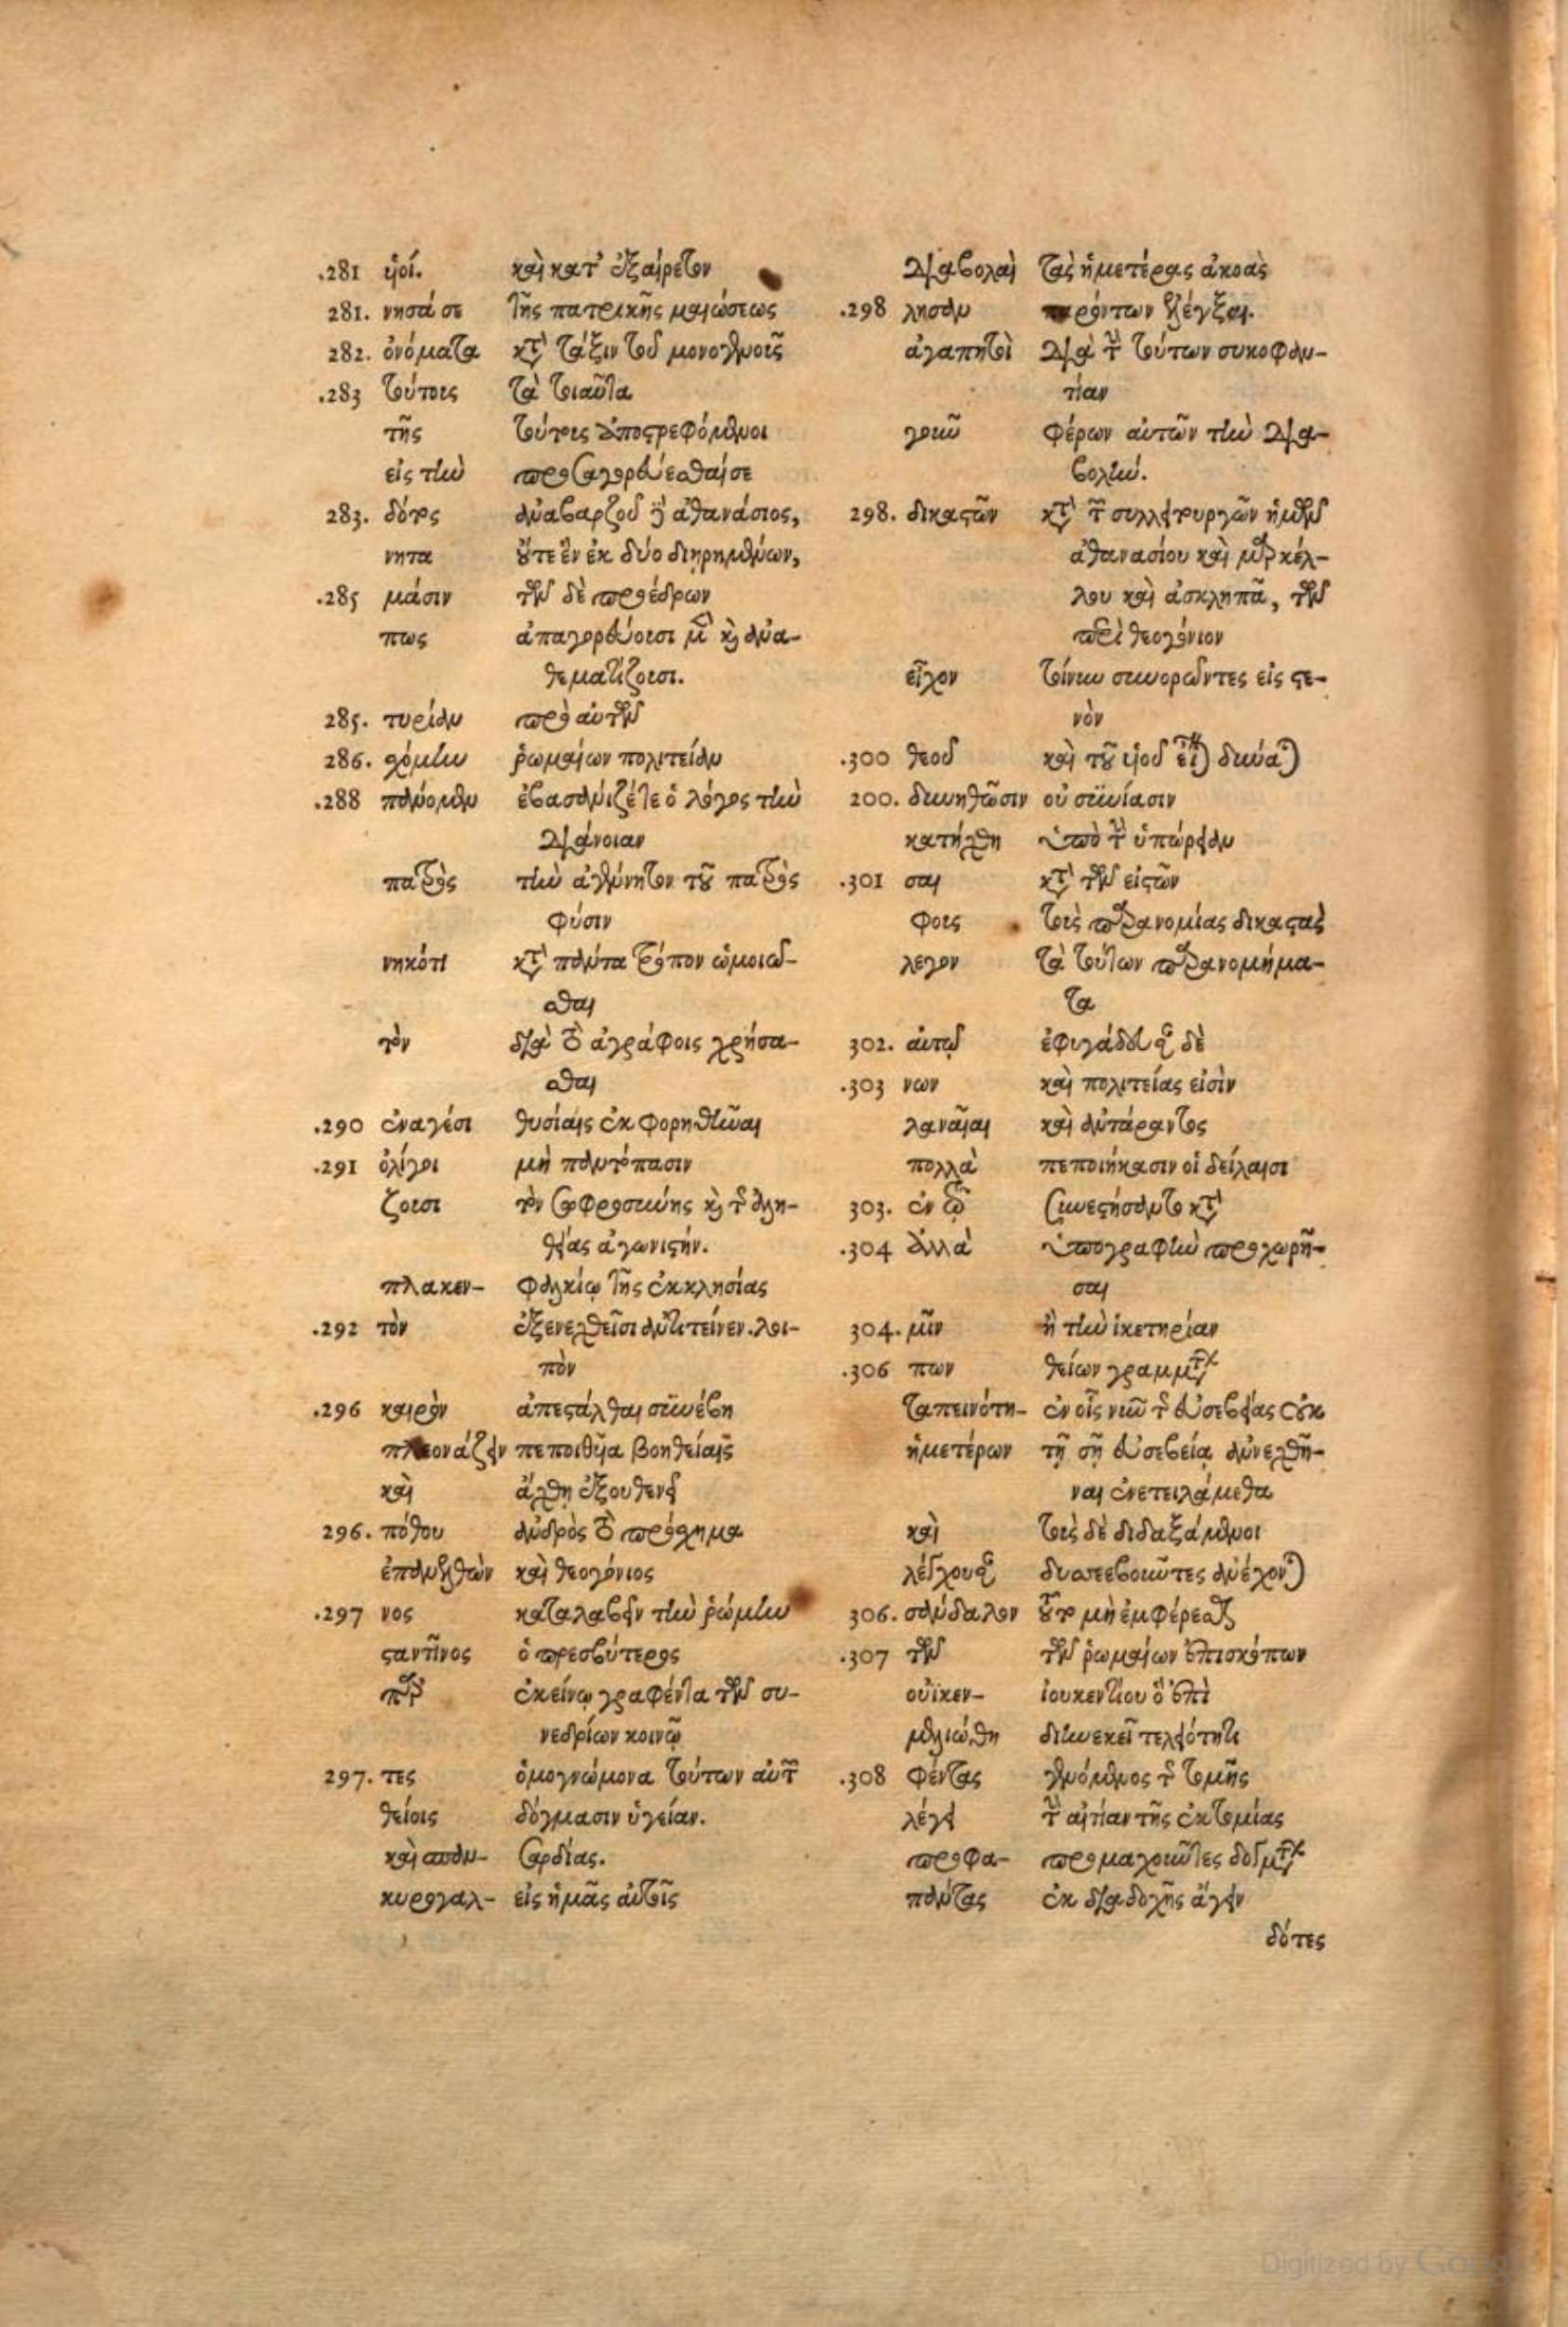 .281 ὑιοί. καὶ κατ' ἐξαίρετον
281. νησά σε τῆς πατρικῆς μαιώσεως
282. ὀνόματα κατὰ τάξιν τοῦ μονογενοῦς
.283 τούτοις τὰ τοιαῦτα
τῆς τούτοις ἀποστρεφόμενοι
εἰς τὴν προσαγορεύεσθαί σε
283. δότος ἀναβαρζοῦ ὁ ἀθανάσιος,
νητα οὔτε ἓν ἐκ δύο διηρημένων,
.285 μάσιν τῶν δὲ προέδρων
πως ἀπαγορεύουσι μὲν καὶ ἀνα-
θεματίζουσι.
285. τυρίαν πρὸ αὐτῶν
286. χόμην ῥωμαίων πολιτείαν
.288 πάνομεν ἐβασάνιζέτε ὁ λόγος τὴν
διάνοιαν
πατρὸς τὴν ἀγέννητον τοῦ πατρὸς
φύσιν
νηκότι κατὰ πάντα τρόπον ὡμοιῶ-
σθαι
τὸν διὰ τὸ ἀγράφοις χρήσα-
σθαι
.290 ἐναγέσι θυσίαις ἐκφορηθῆναι
.291 ὀλίγοι μὴ παντόπασιν
ζουσι τὸν σωφροσύνης καὶ τῆς ἀλη-
θείας ἀγωνιστήν.
πλακεν- φαλκίῳ τῆς ἐκκλησίας
.292 τὸν ἐξενεχθεῖσι ἀντιτείνεν. λοι-
πὸν
.296 καιρὸν ἀπεστάλθαι συνέβη
πλεονάζειν πεποιθυῖα βοηθείαις
καὶ ἄχθη ἐξουθενεῖ
296. πόθου ἀνδρὸς τὸ πρόσχημα
ἐπανελθὼν καὶ θεογόνιος
.297 νος καταλαβεῖν τὴν ῥώμην
σταντῖνος ὁ πρεσβύτερος
παρ' ἐκείνῳ γραφέντα τῶν συ-
νεδρίων κοινῷ
297. τες ὁμογνώμονα τούτων αὐτῶν
θείοις δόγμασιν ὑγείαν.
καὶ σπάν- Σαρδίας.
κυρογαλ- εἰς ἡμᾶς αὐτοῖς
διαβολαὶ τὰς ἡμετέρας ἀκοὰς
.298 λησαν παρόντων ἐλέγξαι.
ἀγαπητοὶ διὰ τὴν τούτων συκοφαν-
τίαν
γοιοῦ φέρων αὐτῶν τὴν δια-
βολήν.
298. δικαστῶν κατὰ τῶν συλλειτουργῶν ἡμῶν
ἀθανασίου καὶ μαρκέλ-
λου καὶ ἀσκληπᾶ, τῶν
περὶ θεογόνιον
εἶχον τοίνυν συνορῶντες εἰς στε-
νὸν
.300 θεοῦ καὶ τοῦ ὑιοῦ εἶναι δύναται
200. δυνηθῶσιν οὐ συνίασιν
κατήχθη ὑπὸ τὴν ὑπώρειαν
.301 σαι κατὰ τῶν εἰς τῶν
φοις τοὺς παρανομίας δικαστὰς
λεγον τὰ τούτων παρανομήμα-
τα
302. αὐτῷ ἐφυγάδευσε δὲ
.303 νων καὶ πολιτείας εἰσὶν
λαναῖαι καὶ ἀντάραντος
πολλὰ πεποιήκασιν οἱ δείλαιοι
303. ἐν τῷ συνεστήσαντο κατὰ
.304 ἀλλὰ ὑπογραφὴν προχωρῆ-
σαι
304. μῖν ἢ τὴν ἱκετηρίαν
.306 πων θείων γραμμάτων
ταπεινότη- ἐν οἷς νῦν τῆς εὐσεβείας οὐκ
ἡμετέρων τῇ σῇ εὐσεβείᾳ ἀνενεχθῆ-
ναι ἐνετειλάμεθα
καὶ τοῖς δὲ διδαξάμενοι
λέσχους δυσσεβοῦντες ἀνέχονται
306. σάνδαλον οὕτω μὴ ἐμφέρεσθαι
.307 τῶν τῶν ῥωμαίων ἐπισκόπων
οὐϊκεν- ἰουκεντίου ὃ ἐπὶ
μενιώθη διηνεκεῖ τελειότητι
.308 φέντας γενόμενος τῆς τομῆς
λέγει τὴν αἰτίαν τῆς ἐκτομίας
προφα- προμαχοῦντες δογμάτων
πάντας ἐκ διαδοχῆς ἄγειν
δότες
Digitized by Google